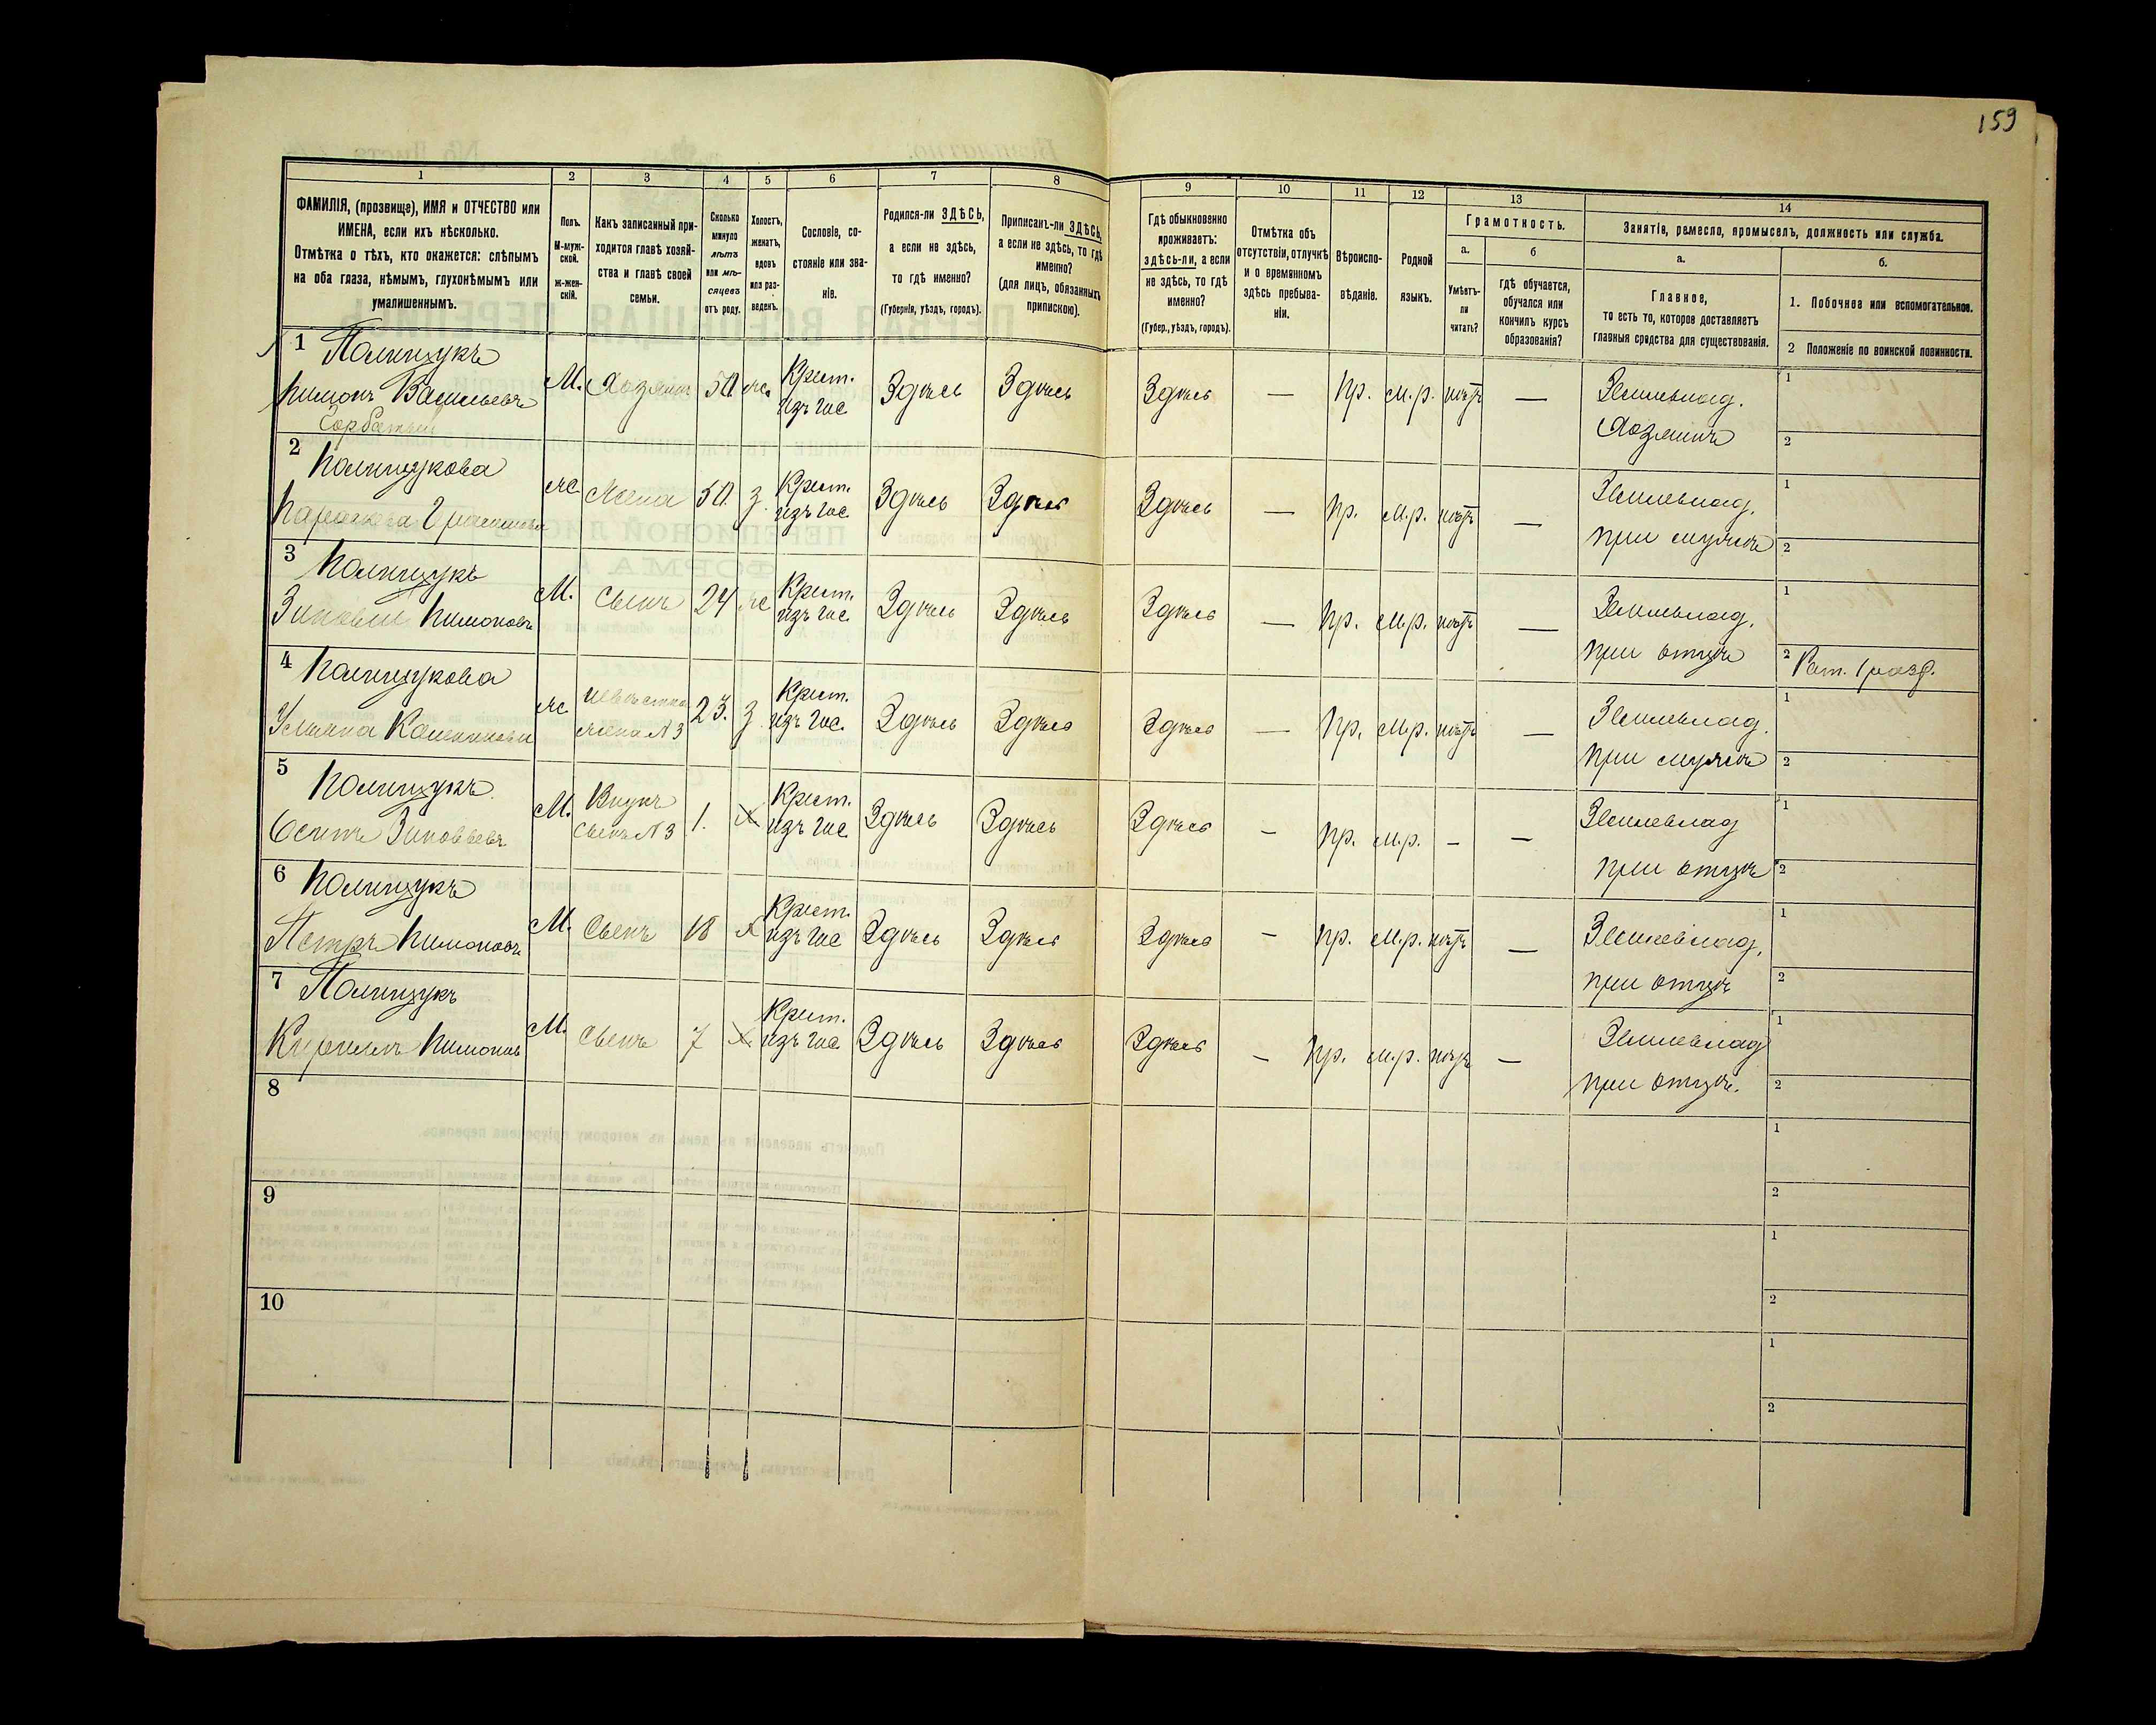 159
1
2
3
4
5
6
7
8
9
10
11
12
13
14
ФАМИЛІЯ, (прозвище), ИМЯ и ОТЧЕСТВО или
ИМЕНА, если ихъ нѣсколько.
Отмѣтка о тѣхъ, кто окажется: слѣпымъ
на оба глаза, нѣмымъ, глухонѣмымъ или
умалишеннымъ.
Полъ.
М-муж-
ской.
Ж-жен-
скій.
Какъ записанный при-
ходится главѣ хозяй-
ства и главѣ своей
семьи.
Сколько
минуло
лѣтъ
или мѣ-
сяцевъ
отъ роду.
Холостъ,
женатъ,
вдовъ
или раз-
веденъ.
Сословіе, со-
стояніе или зва-
ніе.
Родился-ли ЗДѢСЬ,
а если не здѣсь,
то гдѣ именно?
(Губернія, уѣздъ, городъ).
Приписанъ-ли ЗДѢСЬ,
а если не здѣсь, то гдѣ
именно?
(для лицъ, обязанныхъ
припискою).
Гдѣ обыкновенно
проживаетъ:
здѣсь-ли, а если
не здѣсь, то гдѣ
именно?
(Губер., уѣздъ, городъ).
Отмѣтка объ
отсутствіи, отлучкѣ
и о временномъ
здѣсь пребыва-
ніи.
Вѣроиспо-
вѣданіе.
Родной
языкъ.
Грамотность.
а.
б
Умѣетъ-
ли
читать?
гдѣ обучается,
обучался или
кончилъ курсъ
образованія?
Занятія, ремесло, промыселъ, должность или служба.
а.
б.
Главное,
то есть то, которое доставляетъ
главныя средства для существованія.
1. Побочное или вспомогательное.
2 Положеніе по воинской повинности.
1 Полищукъ
Пимонъ Васильевъ
Горбатый
М. Хозяинъ 50 ж. Крест. изъ гос. Здѣсь Здѣсь Здѣсь — пр. м.р. нѣтъ — Земледелад. Хозяинъ
1
2
2 Полищукова
Параскева
ж. Жена 50. з. Крест. изъ гос. Здѣсь Здѣсь Здѣсь — пр. м.р. нѣтъ — при мужѣ
1
2
3 Полищукъ
Зиновій Пимоновъ
М. Сынъ 24 ж Крест. изъ гос. Здѣсь Здѣсь Здѣсь — пр. м.р. нѣтъ — при отцѣ
1
2 Рат. 1 разр.
4 Полищукова
Ульяна
ж Невѣстка жена N 3 23. з. Крест. изъ гос. Здѣсь Здѣсь Здѣсь — пр. м.р. нѣтъ — при мужѣ
1
2
5 Полищукъ
Осипъ Зиновьевъ
М. Внукъ сынъ N 3 1. х Крест. изъ гос. Здѣсь Здѣсь Здѣсь — пр. м.р. — — при отцѣ
1
2
6 Полищукъ
Петръ Пимоновъ
М. Сынъ 18 х Крест. изъ гос Здѣсь Здѣсь Здѣсь — пр. м.р. нѣтъ — при отцѣ
1
2
7 Полищукъ
Кирилъ Пимоновъ
М. Сынъ 7 х Крест. изъ гос. Здѣсь Здѣсь Здѣсь — пр. м.р. нѣтъ — при отцѣ.
1
2
8
1
2
9
1
2
10
1
2